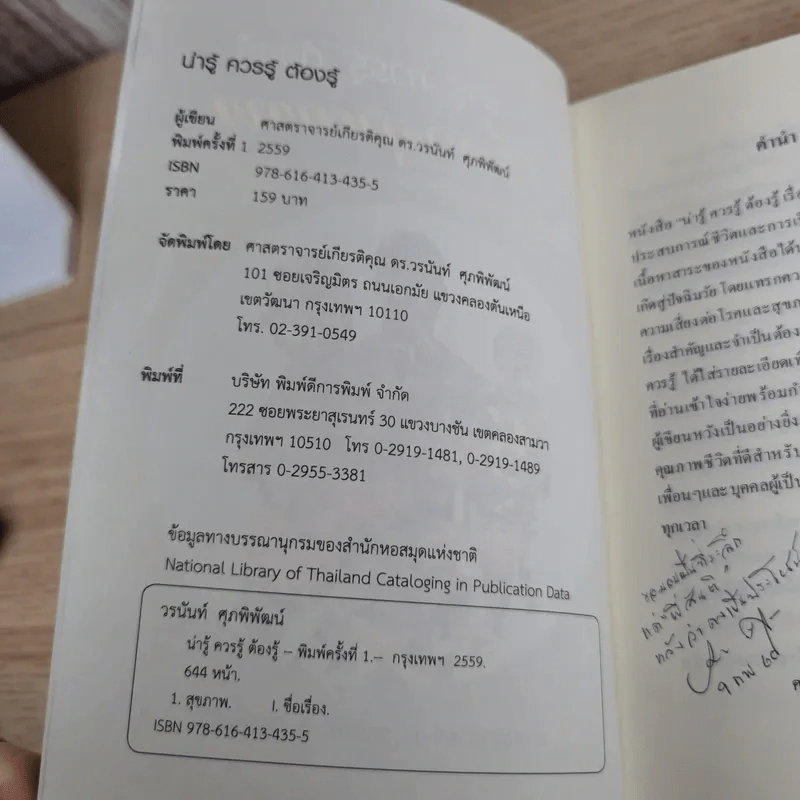 น่ารู้ ควรรู้ ต้องรู้
ผู้เขียน ศาสตราจารย์เกียรติคุณ ดร.วรนันท์ ศุภพิพัฒน์
พิมพ์ครั้งที่ 1 2559
ISBN 978-616-413-435-5
ราคา 159 บาท
จัดพิมพ์โดย ศาสตราจารย์เกียรติคุณ ดร.วรนันท์ ศุภพิพัฒน์
101 ซอยเจริญมิตร ถนนเอกมัย แขวงคลองตันเหนือ
เขตวัฒนา กรุงเทพฯ 10110
โทร. 02-391-0549
พิมพ์ที่ บริษัท พิมพ์ดีการพิมพ์ จำกัด
222 ซอยพระยาสุเรนทร์ 30 แขวงบางชัน เขตคลองสามวา
กรุงเทพฯ 10510 โทร 0-2919-1481, 0-2919-1489
โทรสาร 0-2955-3381
ข้อมูลทางบรรณานุกรมของสำนักหอสมุดแห่งชาติ
National Library of Thailand Cataloging in Publication Data
วรนันท์ ศุภพิพัฒน์
น่ารู้ ควรรู้ ต้องรู้ -- พิมพ์ครั้งที่ 1.-- กรุงเทพฯ 2559.
644 หน้า.
1. สุขภาพ. I. ชื่อเรื่อง.
ISBN 978-616-413-435-5
คำนำ
หนังสือ "น่ารู้ ควรรู้ ต้องรู้ เรื่
ประสบการณ์ชีวิตและการเ
เนื้อหาสาระของหนังสือได้
เกิดสู่ปัจฉิมวัย โดยแทรกคว
ความเสี่ยงต่อโรคและสุขภ
เรื่องสำคัญและจำเป็นต้อง
ควรรู้ ได้ใส่รายละเอียดเพิ่
ที่อ่านเข้าใจง่ายพร้อม
ผู้เขียนหวังเป็นอย่างยิ่ง
คุณภาพชีวิตที่ดีสำหรับ
เพื่อนๆและบุคคลผู้เป็น
ทุกเวลา